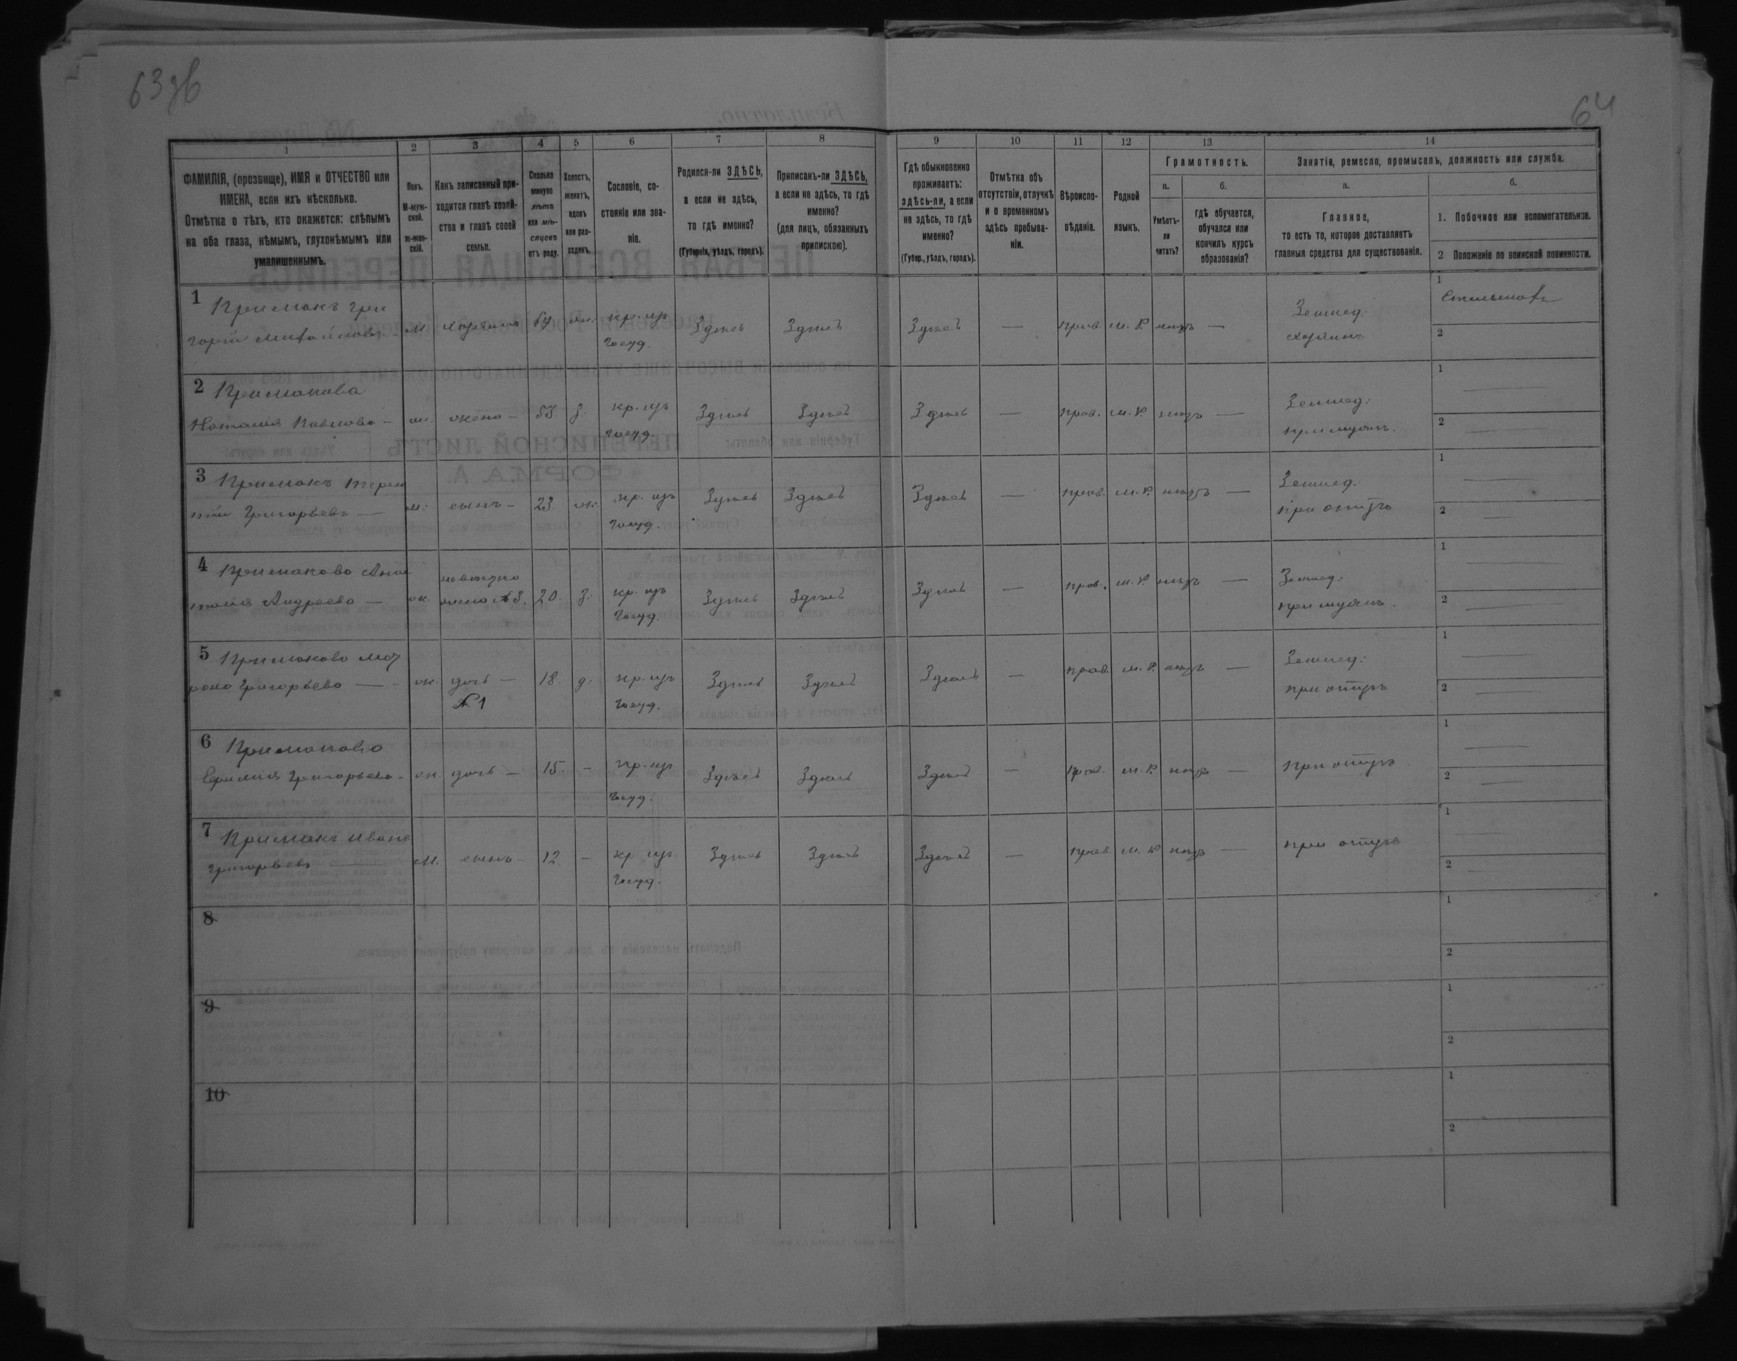 63 зв
64
1
2
3
4
5
6
7
8
9
10
11
12
13
14
ФАМИЛІЯ, (прозвище), ИМЯ и ОТЧЕСТВО или
ИМЕНА, если ихъ нѣсколько.
Отмѣтка о тѣхъ, кто окажется: слѣпымъ
на оба глаза, нѣмымъ, глухонѣмымъ или
умалишеннымъ.
Полъ.
М-муж-
ской.
Ж-жен-
скій.
Какъ записанный при-
ходится главѣ хозяй-
ства и главѣ своей
семьи.
Сколько
минуло
лѣтъ
или мѣ-
сяцевъ
отъ роду.
Холостъ,
женатъ,
вдовъ
или раз-
веденъ.
Сословіе, со-
стояніе или зва-
ніе.
Родился-ли ЗДѢСЬ,
а если не здѣсь,
то гдѣ именно?
(Губернія, уѣздъ, городъ).
Приписанъ-ли ЗДѢСЬ,
а если не здѣсь, то гдѣ
именно?
(для лицъ, обязанныхъ
припискою).
Гдѣ обыкновенно
проживаетъ:
здѣсь-ли, а если
не здѣсь, то гдѣ
именно?
(Губер., уѣздъ, городъ).
Отмѣтка объ
отсутствіи, отлучкѣ
и о временномъ
здѣсь пребыва-
ніи.
Вѣроиспо-
вѣданіе.
Родной
языкъ.
Грамотность.
а.
б.
Умѣетъ-
ли
читать?
гдѣ обучается,
обучался или
кончилъ курсъ
образованія?
Занятія, ремесло, промыселъ, должность или служба.
а.
б.
Главное,
то есть то, которое доставляетъ
главныя средства для существованія.
1. Побочное или вспомогательное.
2 Положеніе по воинской повинности.
1 Примакъ Гри
горій Михайловъ м. хозяинъ 54 жен. кр. изъ
госуд. Здѣсь Здѣсь Здѣсь — прав. м. Р. нѣтъ — Земled.
хозяинъ
1
2
2 Примакова
Наталія Павлова — ж. жена — 53 з. кр. изъ
госуд. Здѣсь Здѣсь Здѣсь — прав. м. Р. нѣтъ — Землед.
при мужѣ.
1
2
3 Примакъ Терен
тій Григорьевъ — м. сынъ — 23 ж. кр. изъ
госуд. Здѣсь Здѣсь Здѣсь — прав. м. Р. нѣтъ — Землед.
при отцѣ
1
2
4 Примакова
Андреева — ж. невѣстка
жена №3. 20. з. кр. изъ
госуд. Здѣсь Здѣсь Здѣсь — прав. м. Р. нѣтъ — Землед.
при мужѣ.
1
2
5 Примакова Мот
рона Григорьева — ж. дочь —
№ 1 18. д. кр. изъ
госуд. Здѣсь Здѣсь Здѣсь — прав. м. Р. нѣтъ — Землед.
при отцѣ
1
2
6 Примакова
Григорьева. ж. дочь — 15. — кр. изъ
госуд. Здѣсь Здѣсь Здѣсь — прав. м. Р. нѣтъ — при отцѣ
1
2
7 Примакъ Иванъ
Григорьевъ — м. сынъ — 12 — кр. изъ
госуд. Здѣсь Здѣсь Здѣсь — прав. м. Р. нѣтъ — при отцѣ
1
2
8
1
2
9
1
2
10
1
2